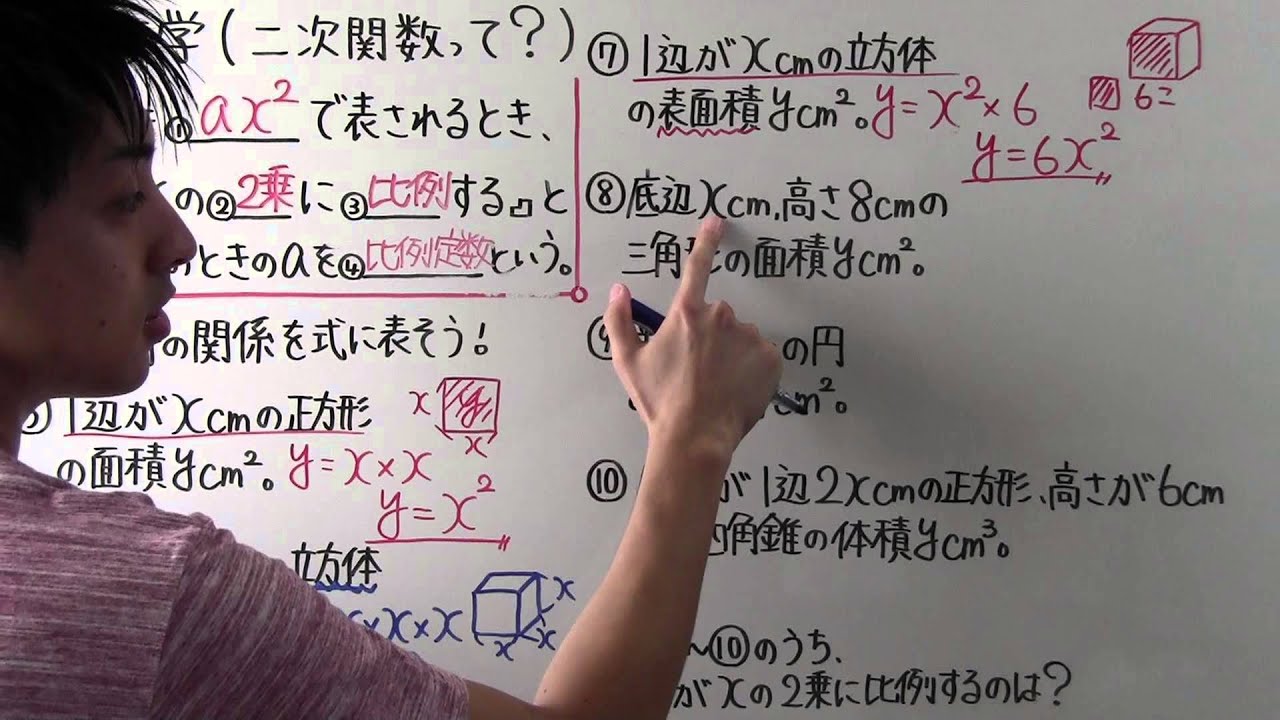 学(二次関数って?)
① ax² で表されるとき、
の②2乗に③比例する』と
のときのaを④比例定数という。
の関係を式に表そう!
1辺がxcmの正方形
x y
x
の面積ycm²。 y=x×x
y=x²
立方体
×x×x
x
x
x
⑦ 1辺がxcmの立方体
の表面積ycm²。 y=x²×6
6こ
y=6x²
⑧ 底辺xcm、高さ8cmの
三角形の面積ycm²。
⑨ の円
cm²。
⑩ が1辺2xcmの正方形、高さが6cm
角錐の体積ycm³。
~⑩のうち、
がxの2乗に比例するのは?